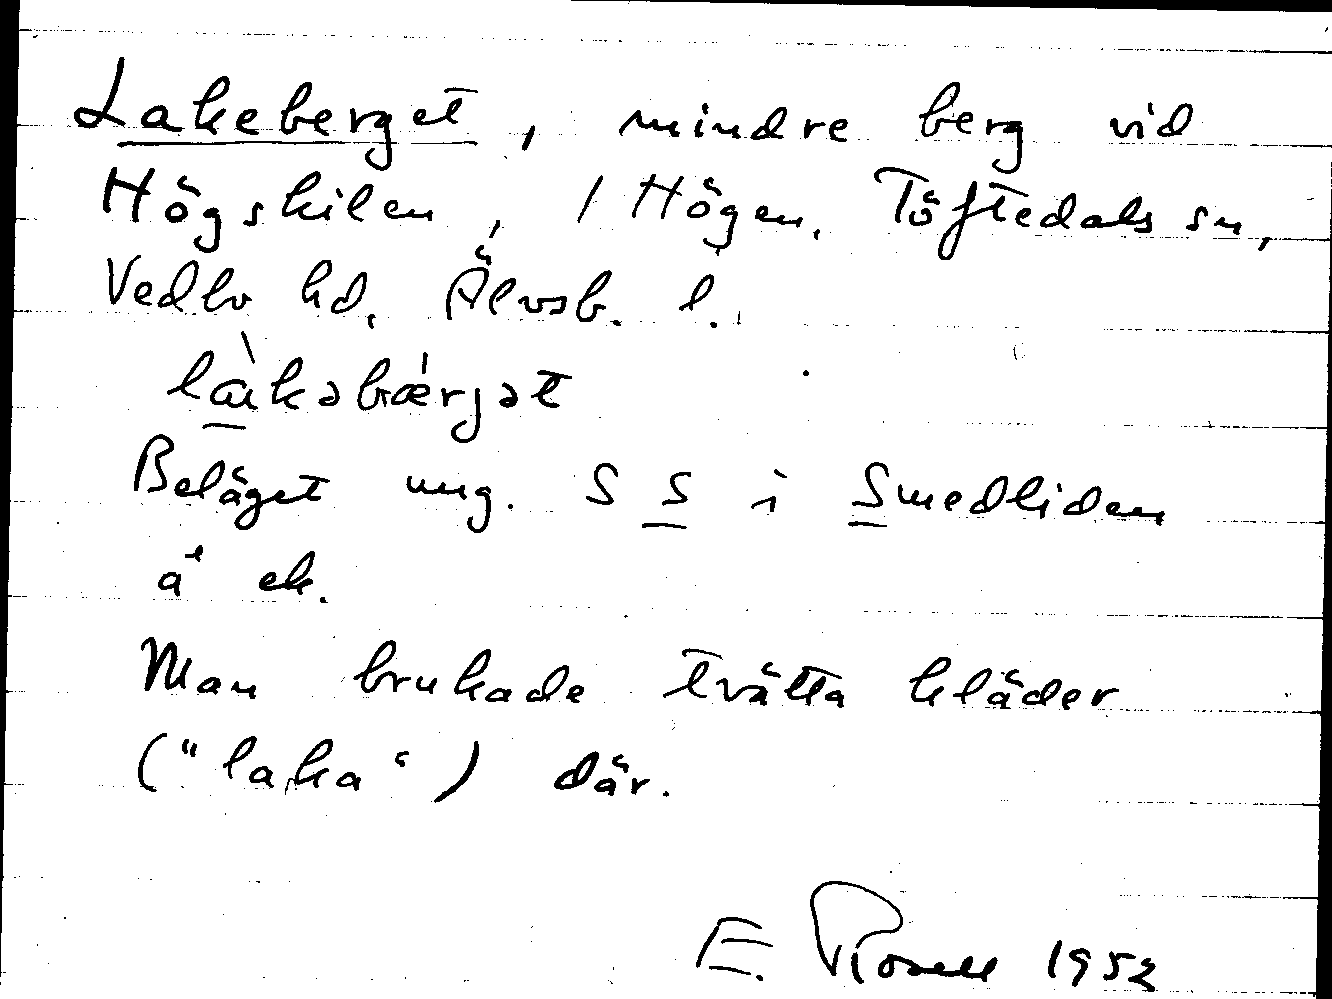 Lakeberget, mindre berg vid
Högskilen, 1 Högen, Töftedals sn,
Vedbo hd, Älvsb. l.
là̱kəbǽrjət
Beläget ung. S S i Smedliden
å ek.
Man brukade tvätta kläder
("laka") där.
E. Rosell 1952